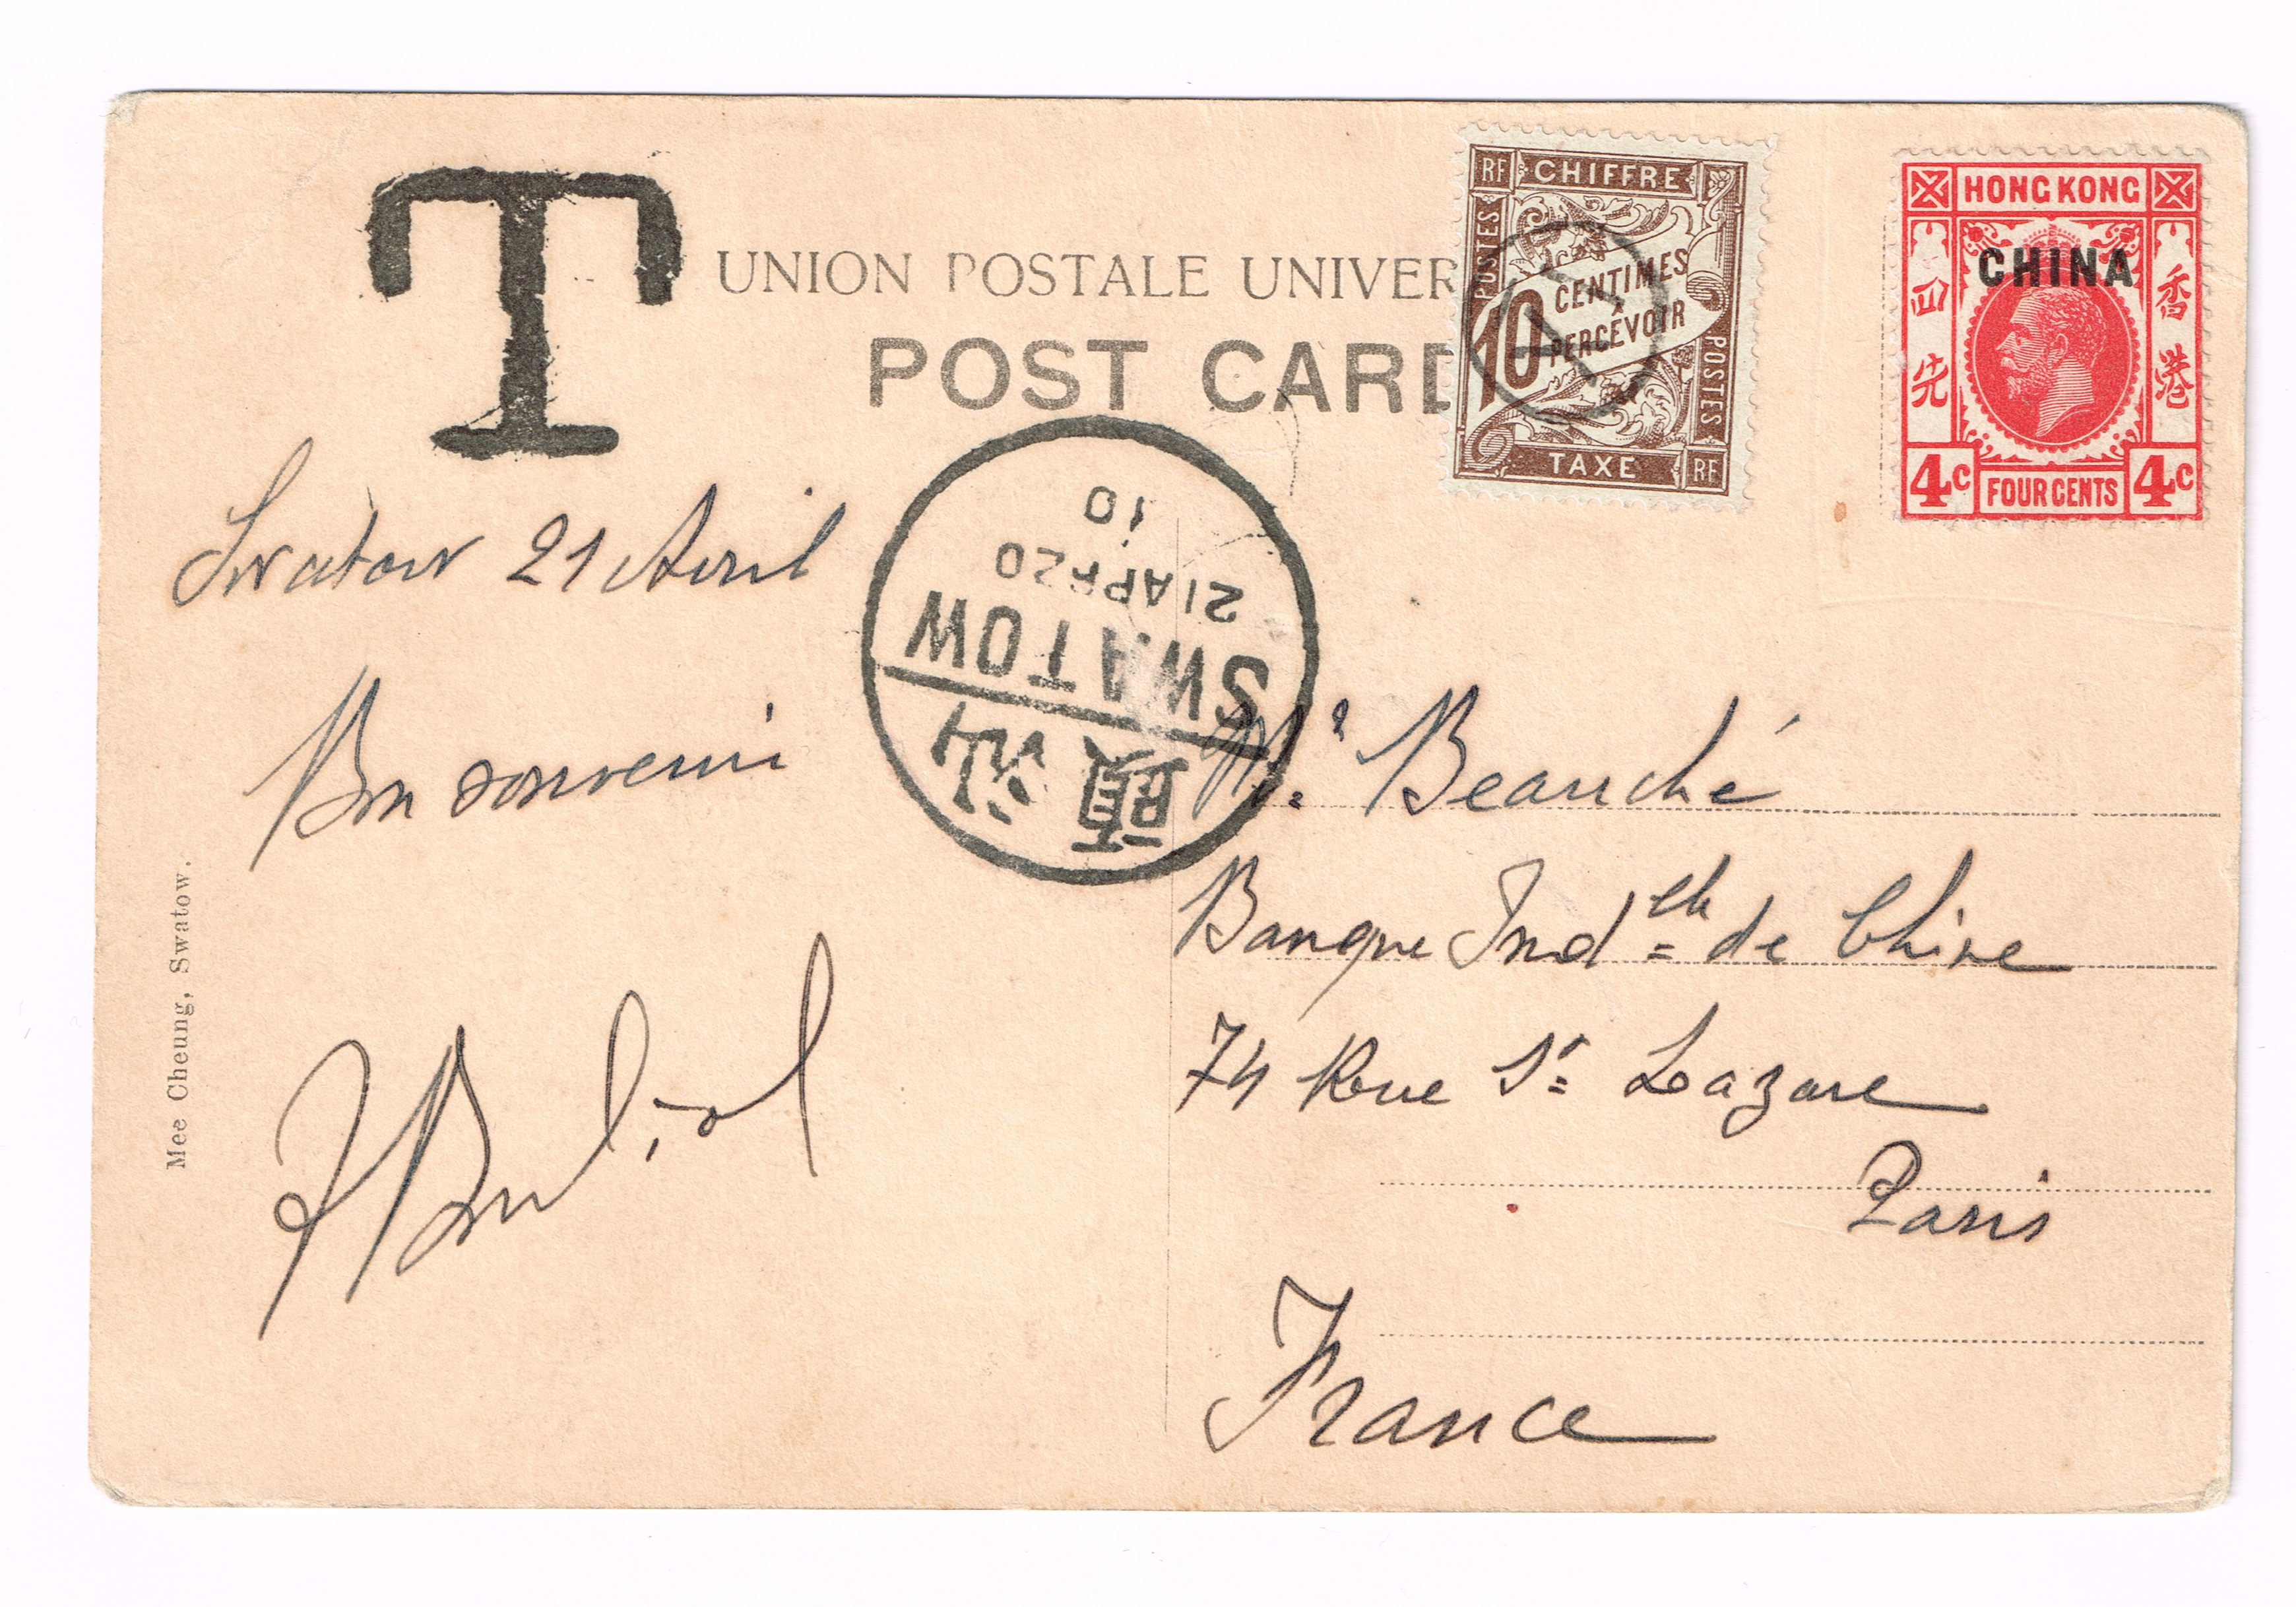 T
UNION POSTALE UNIVER
POST CARD
RF CHIFFRE
POSTES
10 CENTIMES
À
PERCEVOIR
POSTES
TAXE RF
HONG KONG
CHINA
四 香
先 港
4c FOUR CENTS 4c
10
21 APR 20
SWATOW
汕頭
Swatow 21 Avril
Bon souvenir
Mee Cheung, Swatow.
Mr Beauché
Banque Indlle de Chine
74 Rue St Lazare
Paris
France